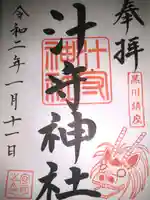 奉拝
黒川鎮座
汁守神社
令和二年一月十一日